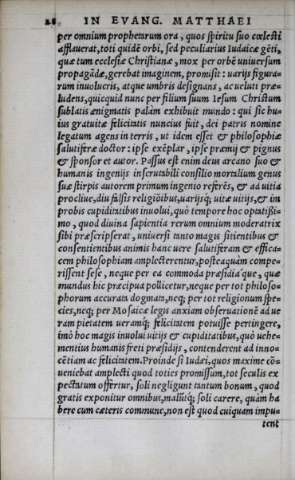 28 IN EVANG. MATTHAEI
per omnium prophetarum ora, quos spiritu suo cœlesti
afflauerat, toti quidē orbi, sed peculiariter Iudaicæ gēti,
quæ tum ecclesiæ Christianæ, mox per orbē uniuersum
propagādæ, gerebat imaginem, promisit: uarijs figura-
rum inuolucris, atque umbris designans, ac ueluti præ-
ludens, quicquid nunc per filium suum Iesum Christum
sublatis ænigmatis palàm exhibuit mundo: qui sic hu-
ius gratuitæ felicitatis nuncius fuit, dei patris nomine
legatum agens in terris, ut idem esset & philosophiæ
salutiferæ doctor: ipse exēplar, ipse præmij & pignus
& sponsor et autor. Passus est enim deus arcano suo &
humanis ingenijs inscrutabili consilio mortalium genus
suæ stirpis autorem primum ingenio referēs, & ad uitia
procliue, diu falsis religiōibus, uarijsq; uitæ uitijs, & im
probis cupiditatibus inuolui, quò tempore hoc opatissi-
mo, quod diuina sapientia rerum omnium moderatrix
sibi præscripserat, uniuersi tanto magis sitientibus &
consentientibus animis hanc uere salutiferam & effica-
cem philosophiam amplecterentur, posteaquàm compe-
rissent sese, neque per ea commoda præsidiáque, quæ
mundus hic præcipua pollicetur, neque per tot philoso-
phorum accurata dogmata, neq; per tot religionum spe-
cies, neq; per Mosaicæ legis anxiam obseruationē ad ue
ram pietatem ueramq; felicitatem potuisse pertingere,
imò hoc magis inuolui uitijs & cupiditatibus, quò uehe-
mentius humanis freti præsidijs, contenderent ad inno-
cētiam ac felicitatem. Proinde si Iudæi, quos maximè cō-
ueniebat amplecti quod toties promissum, tot seculis ex
pectatum offertur, soli negligunt tantum bonum, quod
gratis exponitur omnibus, malūtq; soli carere, quàm ha
bere cum cæteris commune, non est quod cuiquam impu-
tent